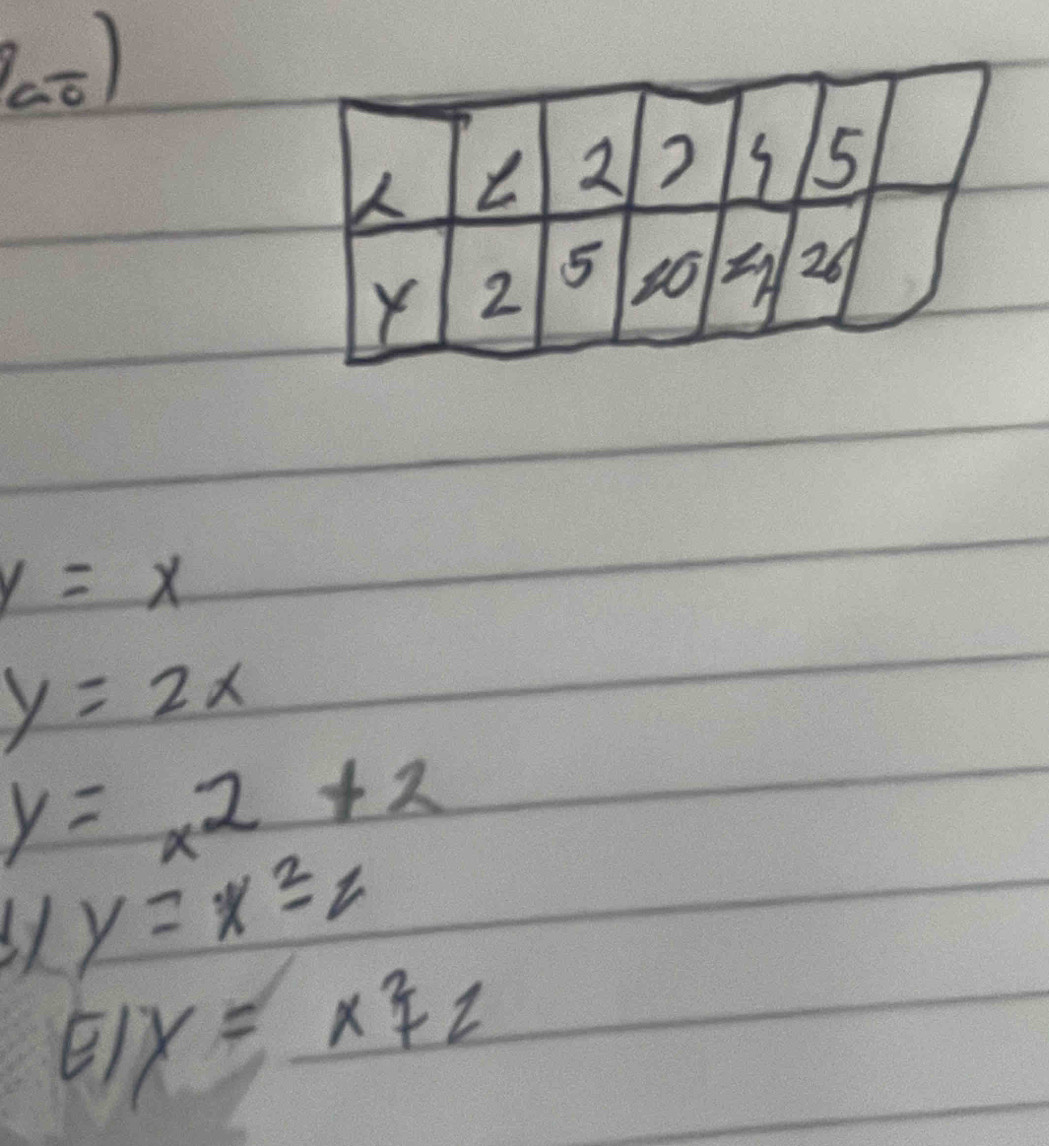 x 1 2 3 4 5
y 2 5 10 17 26
y = x
y = 2x
y = x2 + 2
d) y = x² - 1
E) y = x² + 1